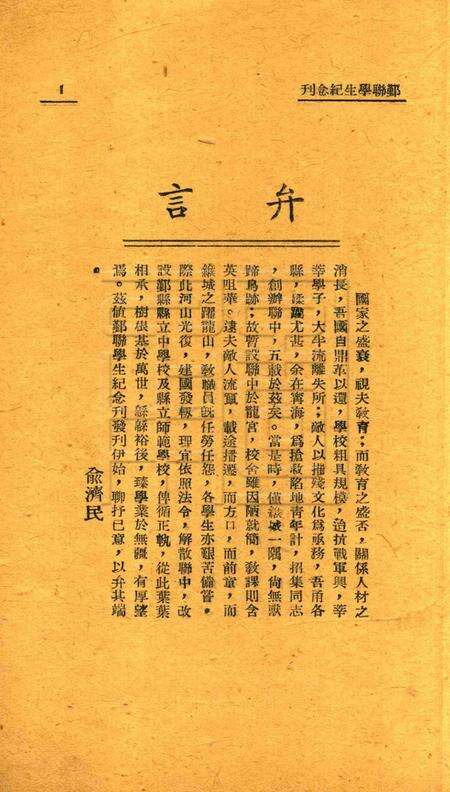 鄞聯學生紀念刊
1
弁言
國家之盛衰,視夫敎育;而敎育之盛否,關係人材之
消長,吾國自鼎革以還,學校粗具規模,迨抗戰軍興,莘
莘學子,大半流離失所;敵人以摧殘文化爲亟務,吾甬各
縣,蹂躪尤甚,余在寗海,爲搶救陷地靑年計,招集同志
,創辦聯中,五載於茲矣。當是時,僅緱城一隅,尙無獸
蹄鳥跡;故暫設聯中於龍宮,校舍雖因陋就簡,敎課則含
英咀華。逮夫敵人流竄,載途播遷,而方口,而前童,而
緱城之躍龍山,敎職員旣任勞任怨,各學生亦艱苦備嘗。
際此河山光復,建國發軔,理宜依照法令,解散聯中,改
設鄞縣縣立中學校及縣立師範學校,俾循正軌,從此葉葉
相承,樹根基於萬世,緜緜裕後,臻學業於無疆,有厚望
焉。茲値鄞聯學生紀念刊發刊伊始,聊抒已意,以弁其端
。
俞濟民